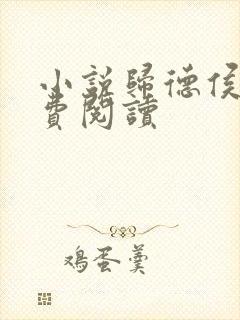 小說歸德侯
費閱讀
鸡蛋羹